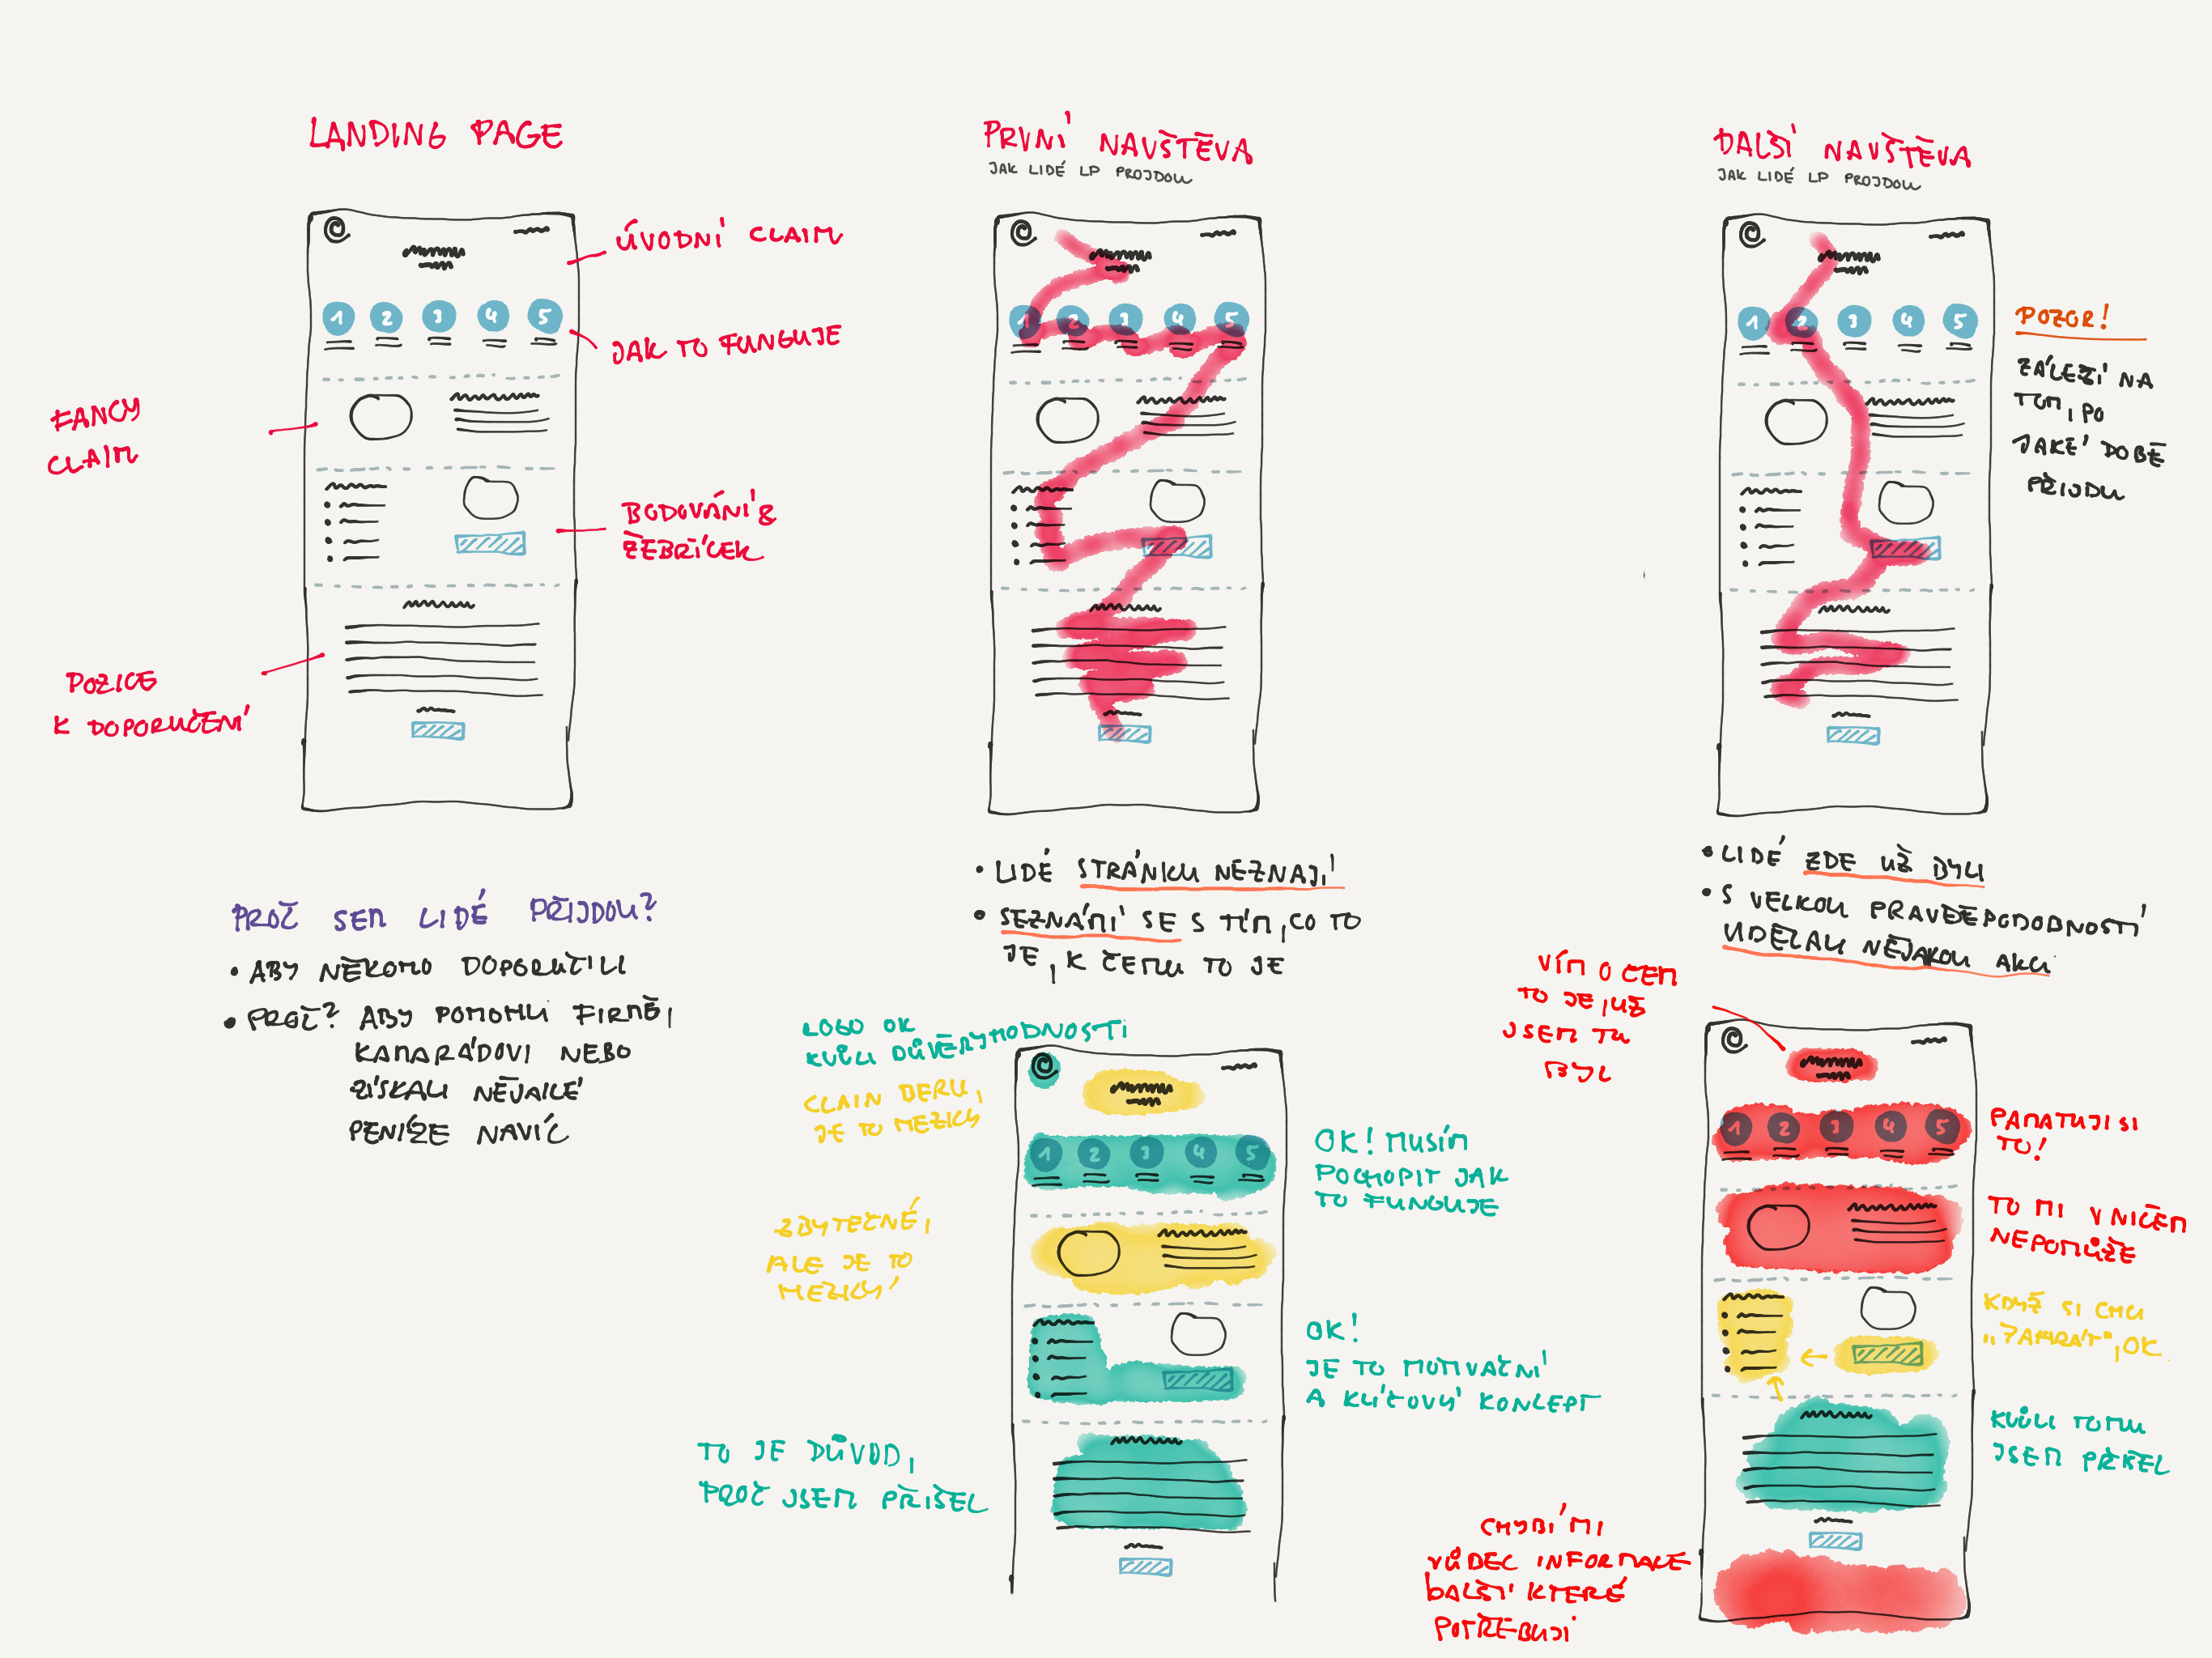 LANDING PAGE
ÚVODNÍ CLAIM
1 2 3 4 5
JAK TO FUNGUJE
FANCY
CLAIM
BODOVÁNÍ &
ŽEBŘÍČEK
POZICE
K DOPORUČENÍ
PROČ SEM LIDÉ PŘIJDOU?
• ABY NĚKOHO DOPORUČILI
• PROČ? ABY POMOHLI FIRMĚ,
KAMARÁDOVI NEBO
ZÍSKALI NĚJAKÉ
PENÍZE NAVÍC
PRVNÍ NAVŠTĚVA
JAK LIDÉ LP PROJDOU
1 2 3 4 5
• LIDÉ STRÁNKU NEZNAJÍ
• SEZNÁMÍ SE S TÍM, CO TO
JE, K ČEMU TO JE
LOGO OK
KVŮLI DŮVĚRYHODNOSTI
CLAIM BERU,
JE TO HEZKY
1 2 3 4 5
OK! MUSÍM
POCHOPIT JAK
TO FUNGUJE
ZBYTEČNÉ,
ALE JE TO
HEZKÝ
OK!
JE TO MOTIVAČNÍ
A KLÍČOVÝ KONCEPT
TO JE DŮVOD,
PROČ JSEM PŘIŠEL
DALŠÍ NAVŠTĚVA
JAK LIDÉ LP PROJDOU
1 2 3 4 5
POZOR!
ZÁLEŽÍ NA
TOM, PO
JAKÉ DOBĚ
PŘIJDU
• LIDÉ ZDE UŽ BYLI
• S VELKOU PRAVDĚPODOBNOSTÍ
UDĚLALI NĚJAKOU AKCI
VÍM O ČEM
TO JE, UŽ
JSEM TU
BYL
1 2 3 4 5
PAMATUJI SI
TO!
TO MI V NIČEM
NEPOMŮŽE
KDYŽ SI CHCI
„ZAHRÁT", OK
KVŮLI TOMU
JSEM PŘIŠEL
CHYBÍ MI
VŮBEC INFORMACE
DALŠÍ KTERÉ
POTŘEBUJI